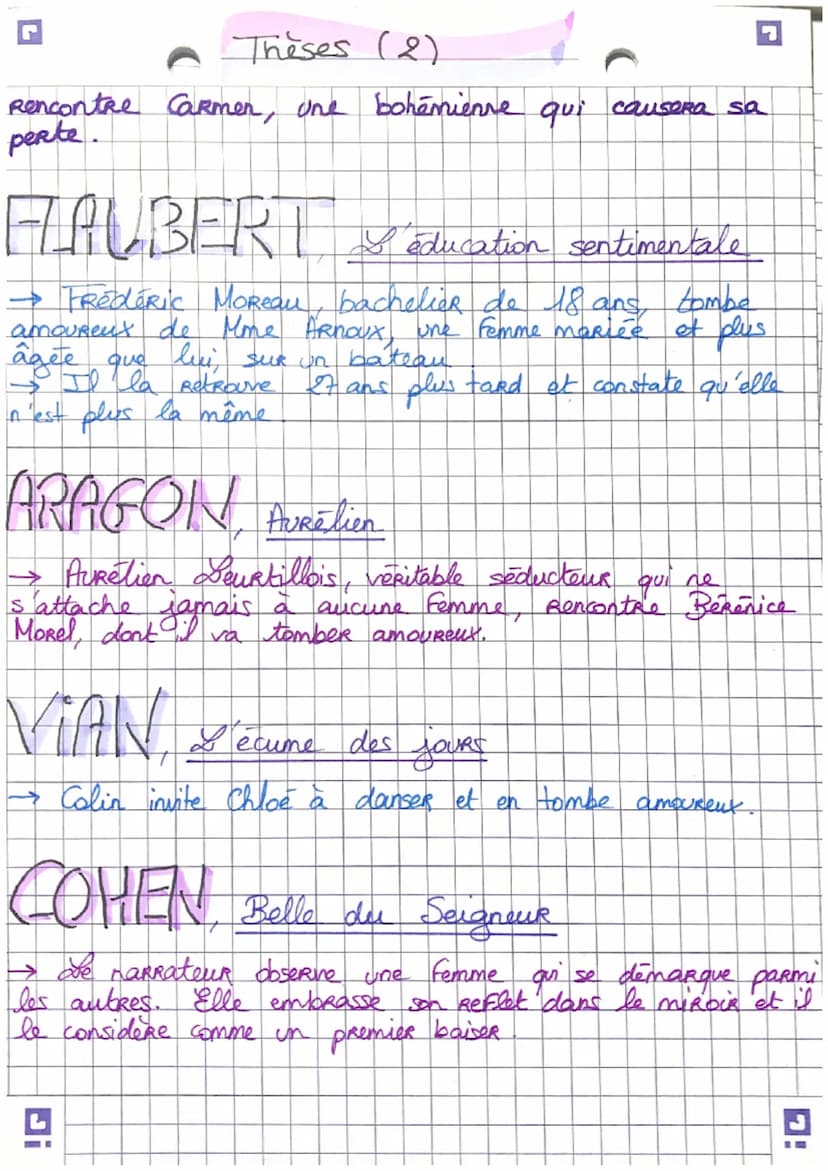 Thèses (2)
Rencontre Carmen, une bohémienne qui causera sa
perte.
FLAUBERT, L'éducation sentimentale
→ Frédéric Moreau, bachelier de 18 ans, tombe
amoureux de Mme Arnoux, une femme mariée et plus
âgée que lui, sur un bateau.
→ Il la retrouve 27 ans plus tard et constate qu'elle
n'est plus la même.
ARAGON, Aurélien
→ Aurélien Leurtillois, véritable séducteur qui ne
s'attache jamais à aucune femme, rencontre Bérénice
Morel, dont il va tomber amoureux.
VIAN, L'écume des jours
→ Colin invite Chloé à danser et en tombe amoureux.
COHEN, Belle du Seigneur
→ Le narrateur observe une femme qui se démarque parmi
les autres. Elle embrasse son reflet dans le miroir et il
le considère comme un premier baiser.